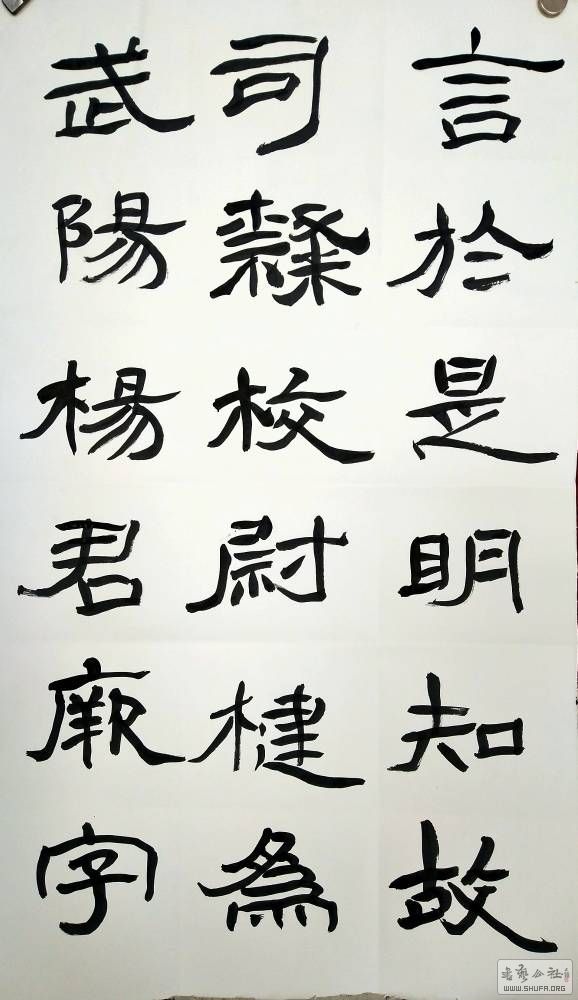 言於是明知故
司隸校尉楗為
武陽楊君厥字
書藝公社
WWW.SHUFA.ORG